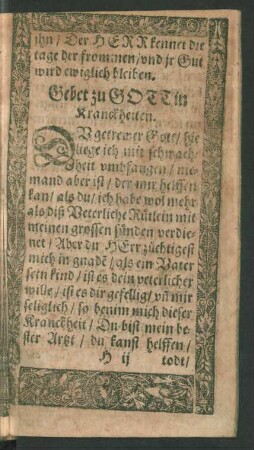 ihn / Der HERR kennet die
tage der frommen / vnd jr Gut
wird ewiglich bleiben.
Gebet zu GOTT in
Kranckheiten.
DV getrewer Gott / hie
liege ich mit schwach-
heit vmbfangen / nie-
mand aber ist / der mir helffen
kan / als du / ich habe wol mehr
als diß Veterliche Rütlein mit
meinen grossen sünden verdie-
net / Aber du HErr züchtigest
mich in gnadē / als ein Vater
sein kind / ist es dein veterlicher
wille / ist es dir gefellig / vñ mir
seliglich / so benim mich dieser
Kranckheit / Du bist mein be-
ster Artzt / du kanst helffen /
H ij todt /